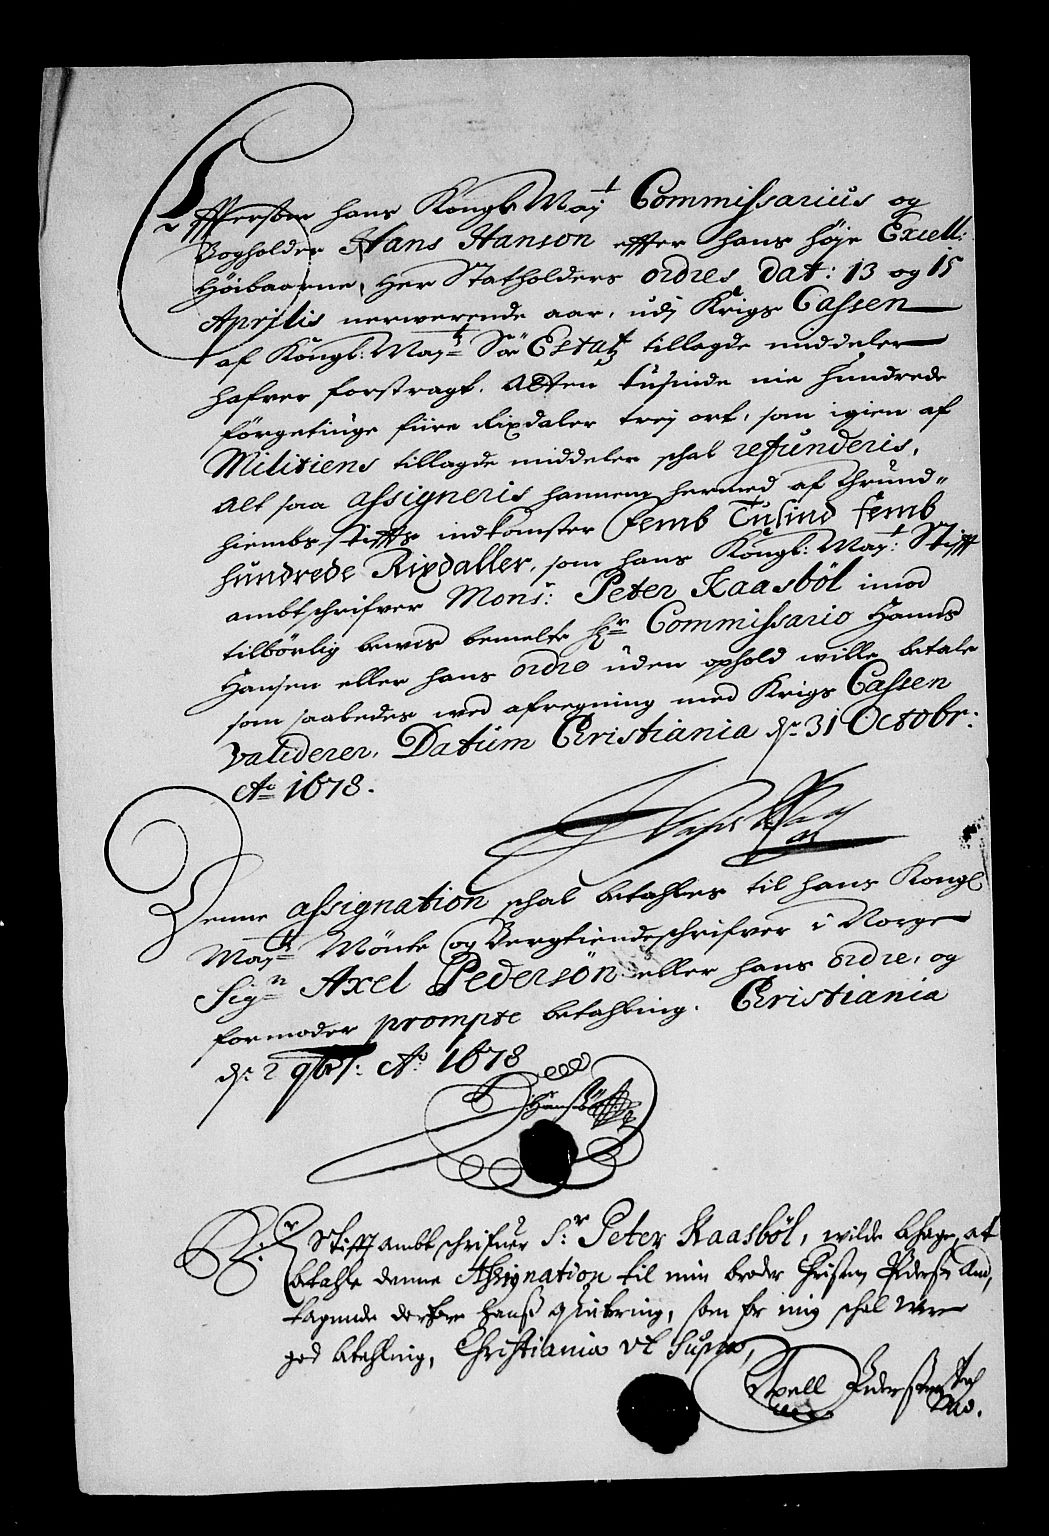 Effterson hans Kongl. May:t Commissarius og
Bogholder Hans Hanson effter hans høje Excell:
Höibaarne Her Statholders ordres dat: 13 og 15
Aprilis nerwerende aar, udj Krigs Cassen
af Kongl: May:ts Estatz tillagde middeler
hafver forstragt. Atten tusinde nie hundrede
förgetiuge fiire Rixdaler trej ort, som igien af
Militiens tillagde middeler schal refunderis,
Alt saa assigneris hannem hermed af Thrund-
hiembs stiffts indkomster Femb Tusind femb
hundrede Rixdaller, som hans Kongl: May:t Stifft
ambtschrifver Mons: Peter Kaasböl imod
tilbörlig bewis bemelte Hr Commissario Hanns
Hansen eller hans ordre uden ophold wille betale
som saaledes wed afregning med Krigs Cassen
validerer. Datum Christiania dn: 31 Octobr:
Ao 1678.
Denne assignation schal betahles til hans Kongl
May:ts Mönte og Bergtiendeschrifver i Norge
Sign Axel Pedersön eller hans ordre, og
formoder prompte betahling. Christiania
dn: 2 9br: Ao 1678
Hr Stifftambtschrifuer Sr: Peter Kaasböl, wilde behage, at
betahle denne Assignation til min broder Christen Pedersen And,
tagende derfore hanß qvitering, som for mig schal were
god betahling, Christiania ut supra,
Axell Pederßen